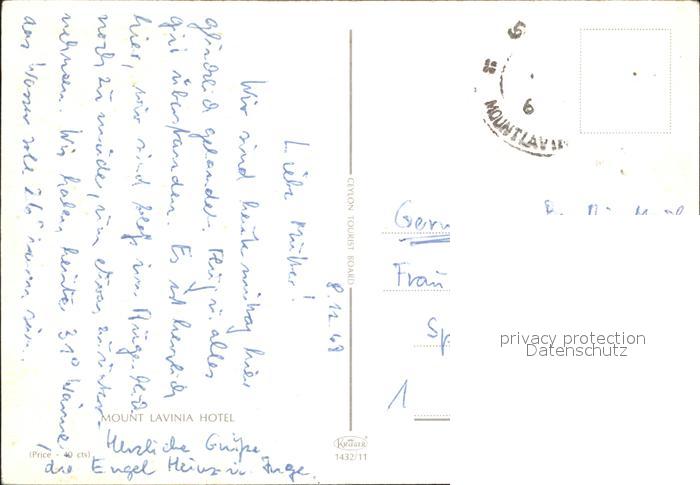 8.12.68
Liebe Mutter!
Wir sind heute mittag hier
glücklich gelandet. Flug u. alles
gut überstanden. Es ist herrlich
hier, wir sind bloß vom Fluge
noch zu müde, um etwas zu unter-
nehmen. Wir haben heute 31° Wärme,
das Wasser soll 26° warm sein.
Herzliche Grüße
die Engel Heinz u. Inge.
MOUNT LAVINIA HOTEL
(Price - 40 cts)
CEYLON TOURIST BOARD
KRÜGER
1432/11
5
6
MOUNT LAVIN
Germ
Frau
Sp
1
privacy protection
Datenschutz